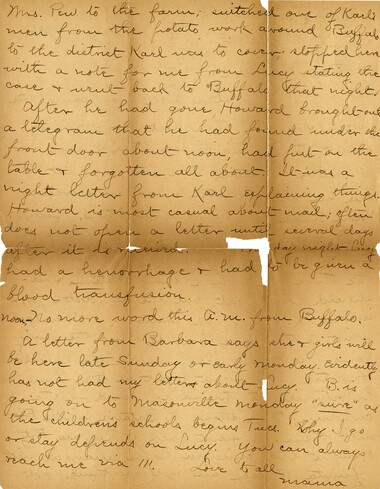 Mrs. Pew to the farm; switched one of Karl's
men from the potato work around Buffalo
to the district Karl was to cover, stopped here
with a note for me from Lucy stating the
case & went back to Buffalo that night.
After he had gone Howard brought out
a telegram that he had found under the
front door about noon, had put on the
table & forgotten all about. It was a
night letter from Karl explaining things.
Howard is most casual about mail; often
does not open a letter until several days
after it is received. day night Lucy
had a hemorrhage & had to be given a
blood transfusion.
Noon - No more word this A.M. from Buffalo.
A letter from Barbara says she & girls will
be here late Sunday or early Monday. Evidently
has not had my letters about Lucy. B. is
going on to Masonville Monday "sure" as
the children's schools begins Tues. Why I go
or stay depends on Lucy. You can always
reach me via
Love to all
mama